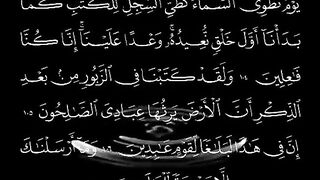 يَوْمَ نَطْوِى ٱلسَّمَآءَ كَطَىِّ ٱلسِّجِلِّ لِلْكُتُبِ كَمَا
بَدَأْنَآ أَوَّلَ خَلْقٍ نُّعِيدُهُۥ وَعْدًا عَلَيْنَآ إِنَّا كُنَّا
فَٰعِلِينَ ١٠٤ وَلَقَدْ كَتَبْنَا فِى ٱلزَّبُورِ مِنۢ بَعْدِ
ٱلذِّكْرِ أَنَّ ٱلْأَرْضَ يَرِثُهَا عِبَادِىَ ٱلصَّٰلِحُونَ ١٠٥
إِنَّ فِى هَٰذَا لَبَلَٰغًا لِّقَوْمٍ عَٰبِدِينَ ١٠٦ وَمَآ أَرْسَلْنَٰكَ